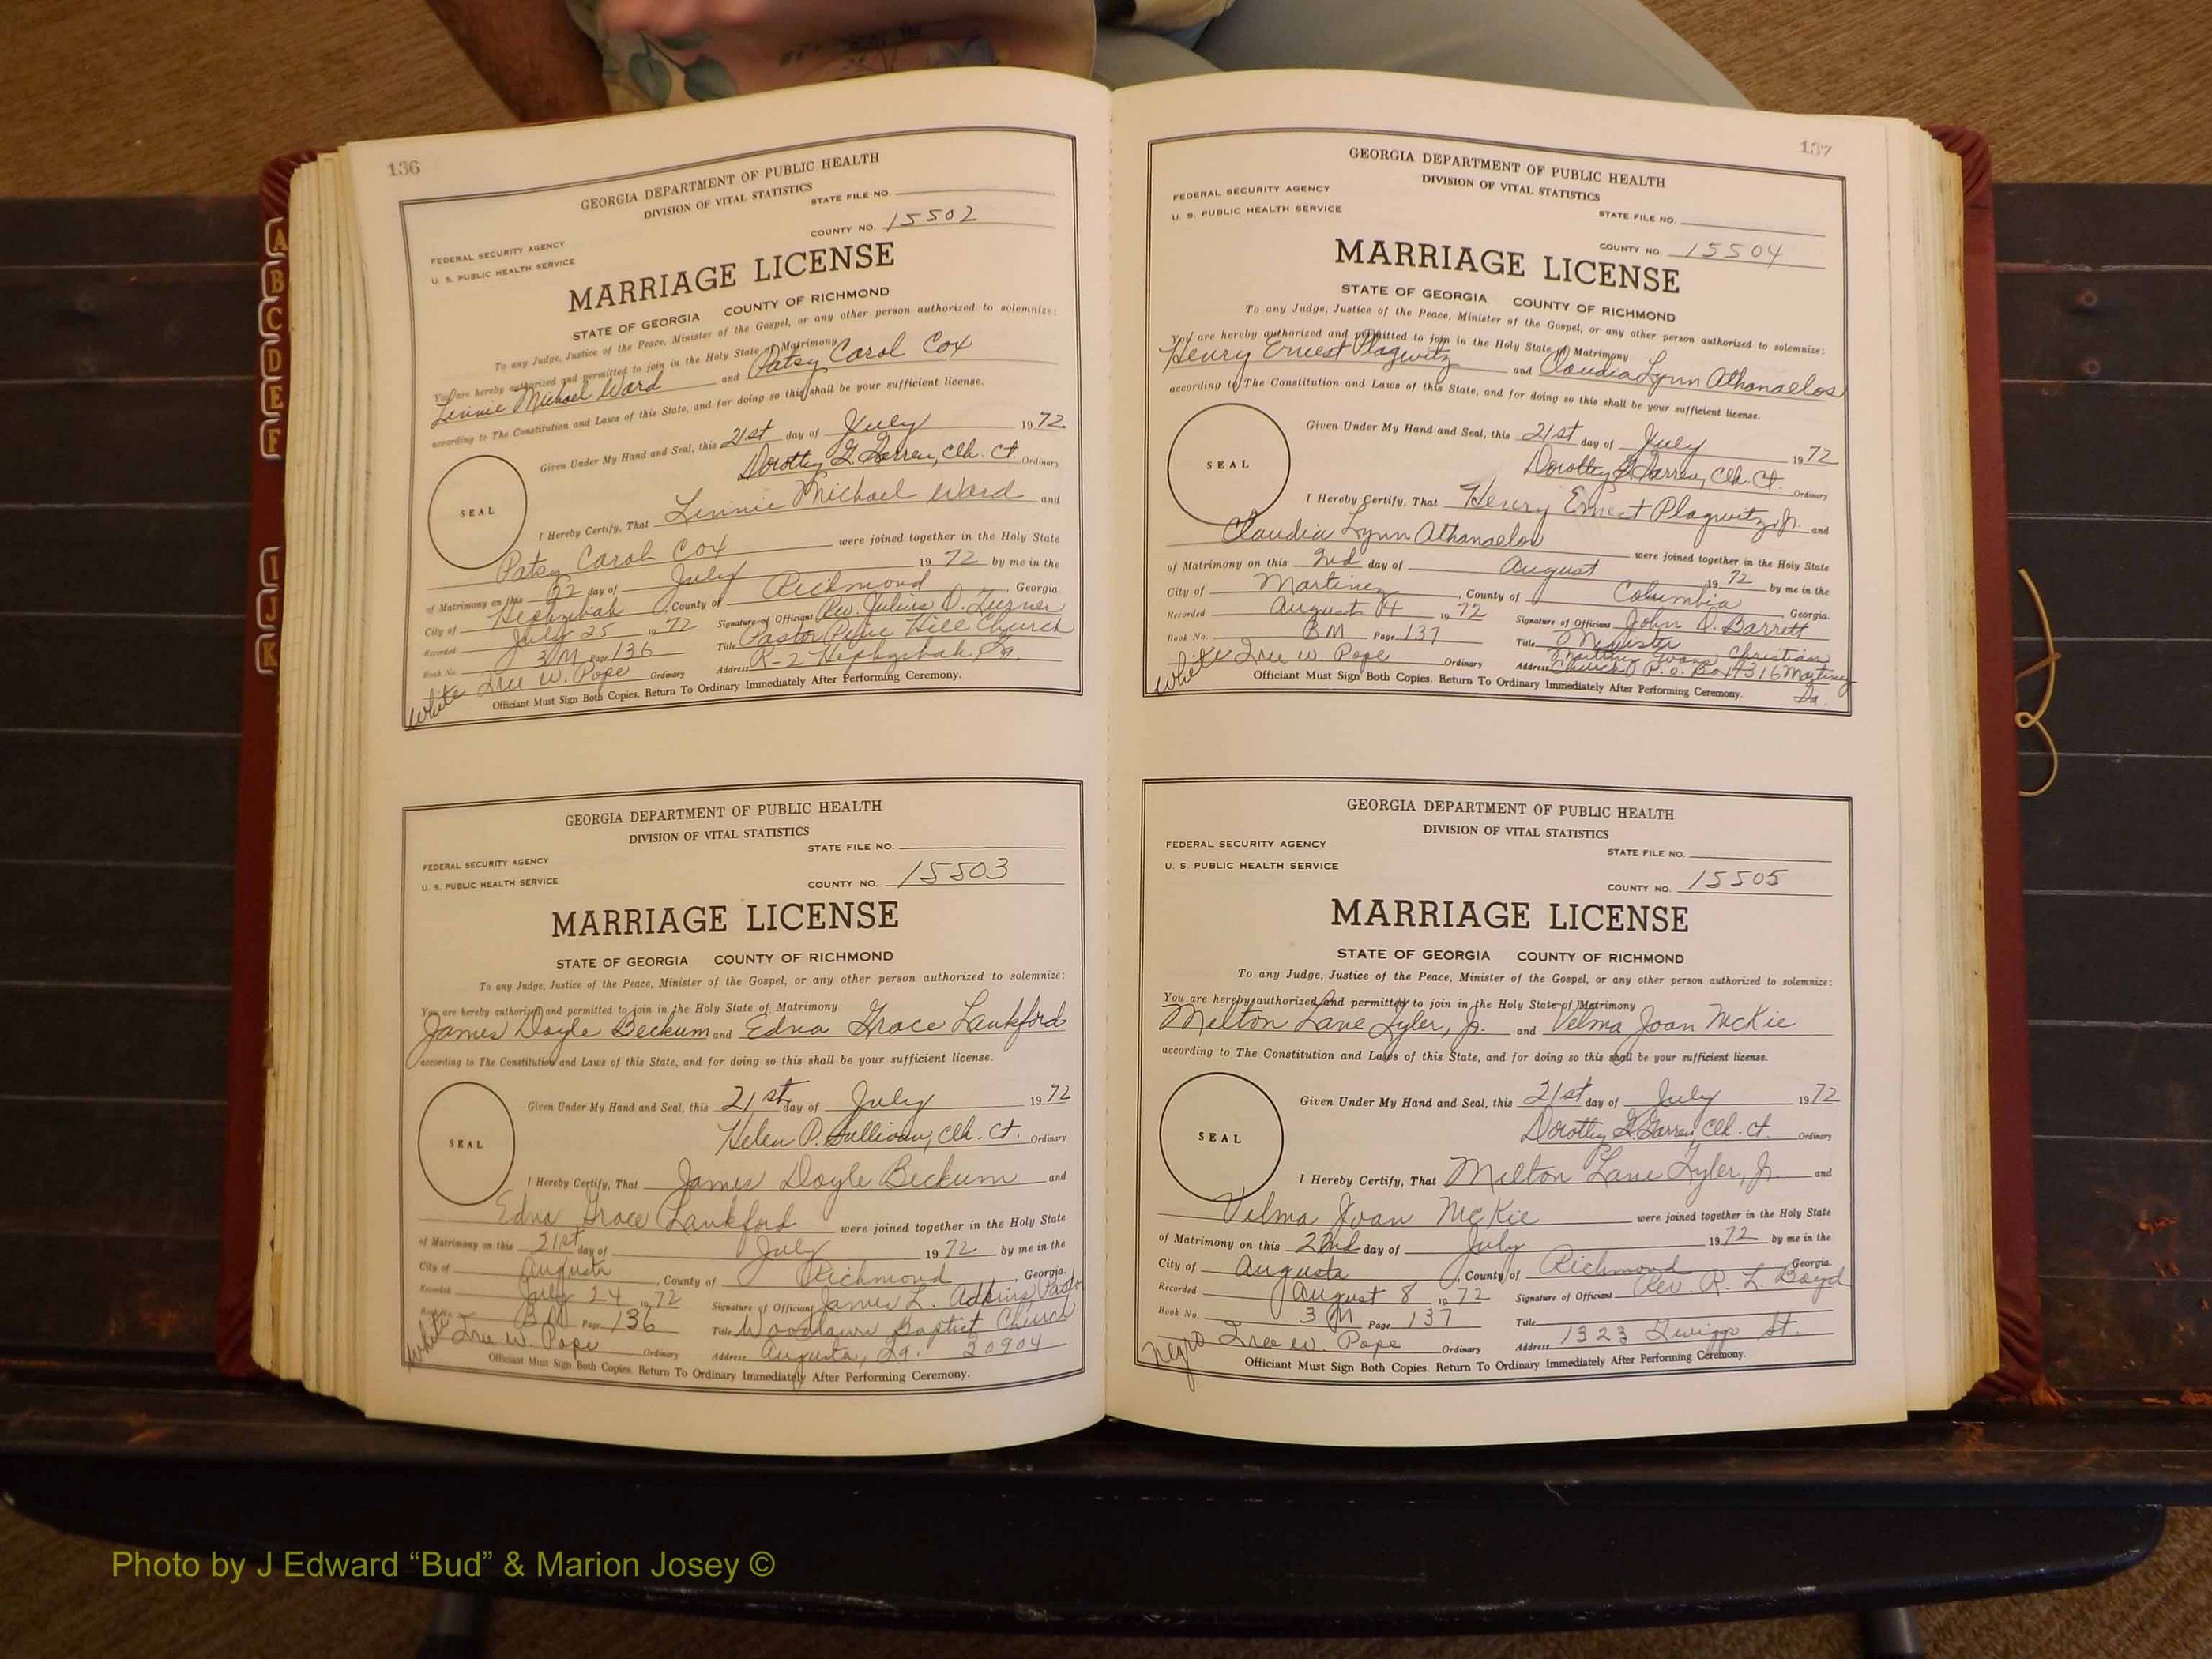 136
GEORGIA DEPARTMENT OF PUBLIC HEALTH
DIVISION OF VITAL STATISTICS
STATE FILE NO.
FEDERAL SECURITY AGENCY
U. S. PUBLIC HEALTH SERVICE
COUNTY NO. 15502
MARRIAGE LICENSE
STATE OF GEORGIA COUNTY OF RICHMOND
To any Judge, Justice of the Peace, Minister of the Gospel, or any other person authorized to solemnize:
You are hereby authorized and permitted to join in the Holy State of Matrimony
Linnie Michael Ward and Patsy Carol Cox
according to The Constitution and Laws of this State, and for doing so this shall be your sufficient license.
Given Under My Hand and Seal, this 21st day of July 1972
Dorothy G. Farren, Clk. Ct. Ordinary
SEAL
I Hereby Certify, That Linnie Michael Ward and
Patsy Carol Cox were joined together in the Holy State
of Matrimony on this 22 day of July 1972 by me in the
City of Hephzibah, County of Richmond, Georgia.
Recorded July 25 1972 Signature of Officiant Rev. Julius D. Turner
Book No. 3M Page 136 Title Pastor Pine Hill Church
White Ordinary Address R-2 Hephzibah, Ga.
W. Pope
Officiant Must Sign Both Copies. Return To Ordinary Immediately After Performing Ceremony.
GEORGIA DEPARTMENT OF PUBLIC HEALTH
DIVISION OF VITAL STATISTICS
STATE FILE NO.
FEDERAL SECURITY AGENCY
U. S. PUBLIC HEALTH SERVICE
COUNTY NO. 15503
MARRIAGE LICENSE
STATE OF GEORGIA COUNTY OF RICHMOND
To any Judge, Justice of the Peace, Minister of the Gospel, or any other person authorized to solemnize:
You are hereby authorized and permitted to join in the Holy State of Matrimony
James Doyle Beckum and Edna Grace Lankford
according to The Constitution and Laws of this State, and for doing so this shall be your sufficient license.
Given Under My Hand and Seal, this 21st day of July 1972
Helen P. Sullivan, Clk. Ct. Ordinary
SEAL
I Hereby Certify, That James Doyle Beckum and
Edna Grace Lankford were joined together in the Holy State
of Matrimony on this 21st day of July 1972 by me in the
City of Augusta, County of Richmond, Georgia.
Recorded July 24 1972 Signature of Officiant James L. Adkins, Pastor
Book No. 3M Page 136 Title Woodlawn Baptist Church
White W. Pope Ordinary Address Augusta, Ga. 30904
Officiant Must Sign Both Copies. Return To Ordinary Immediately After Performing Ceremony.
137
GEORGIA DEPARTMENT OF PUBLIC HEALTH
DIVISION OF VITAL STATISTICS
FEDERAL SECURITY AGENCY
U. S. PUBLIC HEALTH SERVICE
STATE FILE NO.
COUNTY NO. 15504
MARRIAGE LICENSE
STATE OF GEORGIA COUNTY OF RICHMOND
To any Judge, Justice of the Peace, Minister of the Gospel, or any other person authorized to solemnize:
You are hereby authorized and permitted to join in the Holy State of Matrimony
Henry Ernest Plagwitz and Claudia Lynn Athanaelos
according to The Constitution and Laws of this State, and for doing so this shall be your sufficient license.
Given Under My Hand and Seal, this 21st day of July 1972
Dorothy G. Farren, Clk. Ct. Ordinary
SEAL
I Hereby Certify, That Henry Ernest Plagwitz, Jr. and
Claudia Lynn Athanaelos were joined together in the Holy State
of Matrimony on this 2nd day of August 1972 by me in the
City of Martinez, County of Columbia Georgia.
Recorded August 4 1972 Signature of Officiant John D. Barrett
Book No. 3M Page 137 Title Minister
White W. Pope Ordinary Address Martinez Evans Christian
Church P.O. Box 4316 Martinez
Ga.
Officiant Must Sign Both Copies. Return To Ordinary Immediately After Performing Ceremony.
GEORGIA DEPARTMENT OF PUBLIC HEALTH
DIVISION OF VITAL STATISTICS
FEDERAL SECURITY AGENCY
U. S. PUBLIC HEALTH SERVICE
STATE FILE NO.
COUNTY NO. 15505
MARRIAGE LICENSE
STATE OF GEORGIA COUNTY OF RICHMOND
To any Judge, Justice of the Peace, Minister of the Gospel, or any other person authorized to solemnize:
You are hereby authorized and permitted to join in the Holy State of Matrimony
Milton Lane Tyler, Jr. and Velma Joan McKie
according to The Constitution and Laws of this State, and for doing so this shall be your sufficient license.
Given Under My Hand and Seal, this 21st day of July 1972
Dorothy G. Farren, Clk. Ct. Ordinary
SEAL
I Hereby Certify, That Milton Lane Tyler, Jr. and
Velma Joan McKie were joined together in the Holy State
of Matrimony on this 22nd day of July 1972 by me in the
City of Augusta, County of Richmond Georgia.
Recorded August 8 1972 Signature of Officiant Rev. R. L. Boyd
Book No. 3M Page 137 Title
Negro W. Pope Ordinary Address 1323 Twiggs St.
Officiant Must Sign Both Copies. Return To Ordinary Immediately After Performing Ceremony.
A
B
C
D
E
F
I
J
K
Photo by J Edward “Bud” & Marion Josey ©